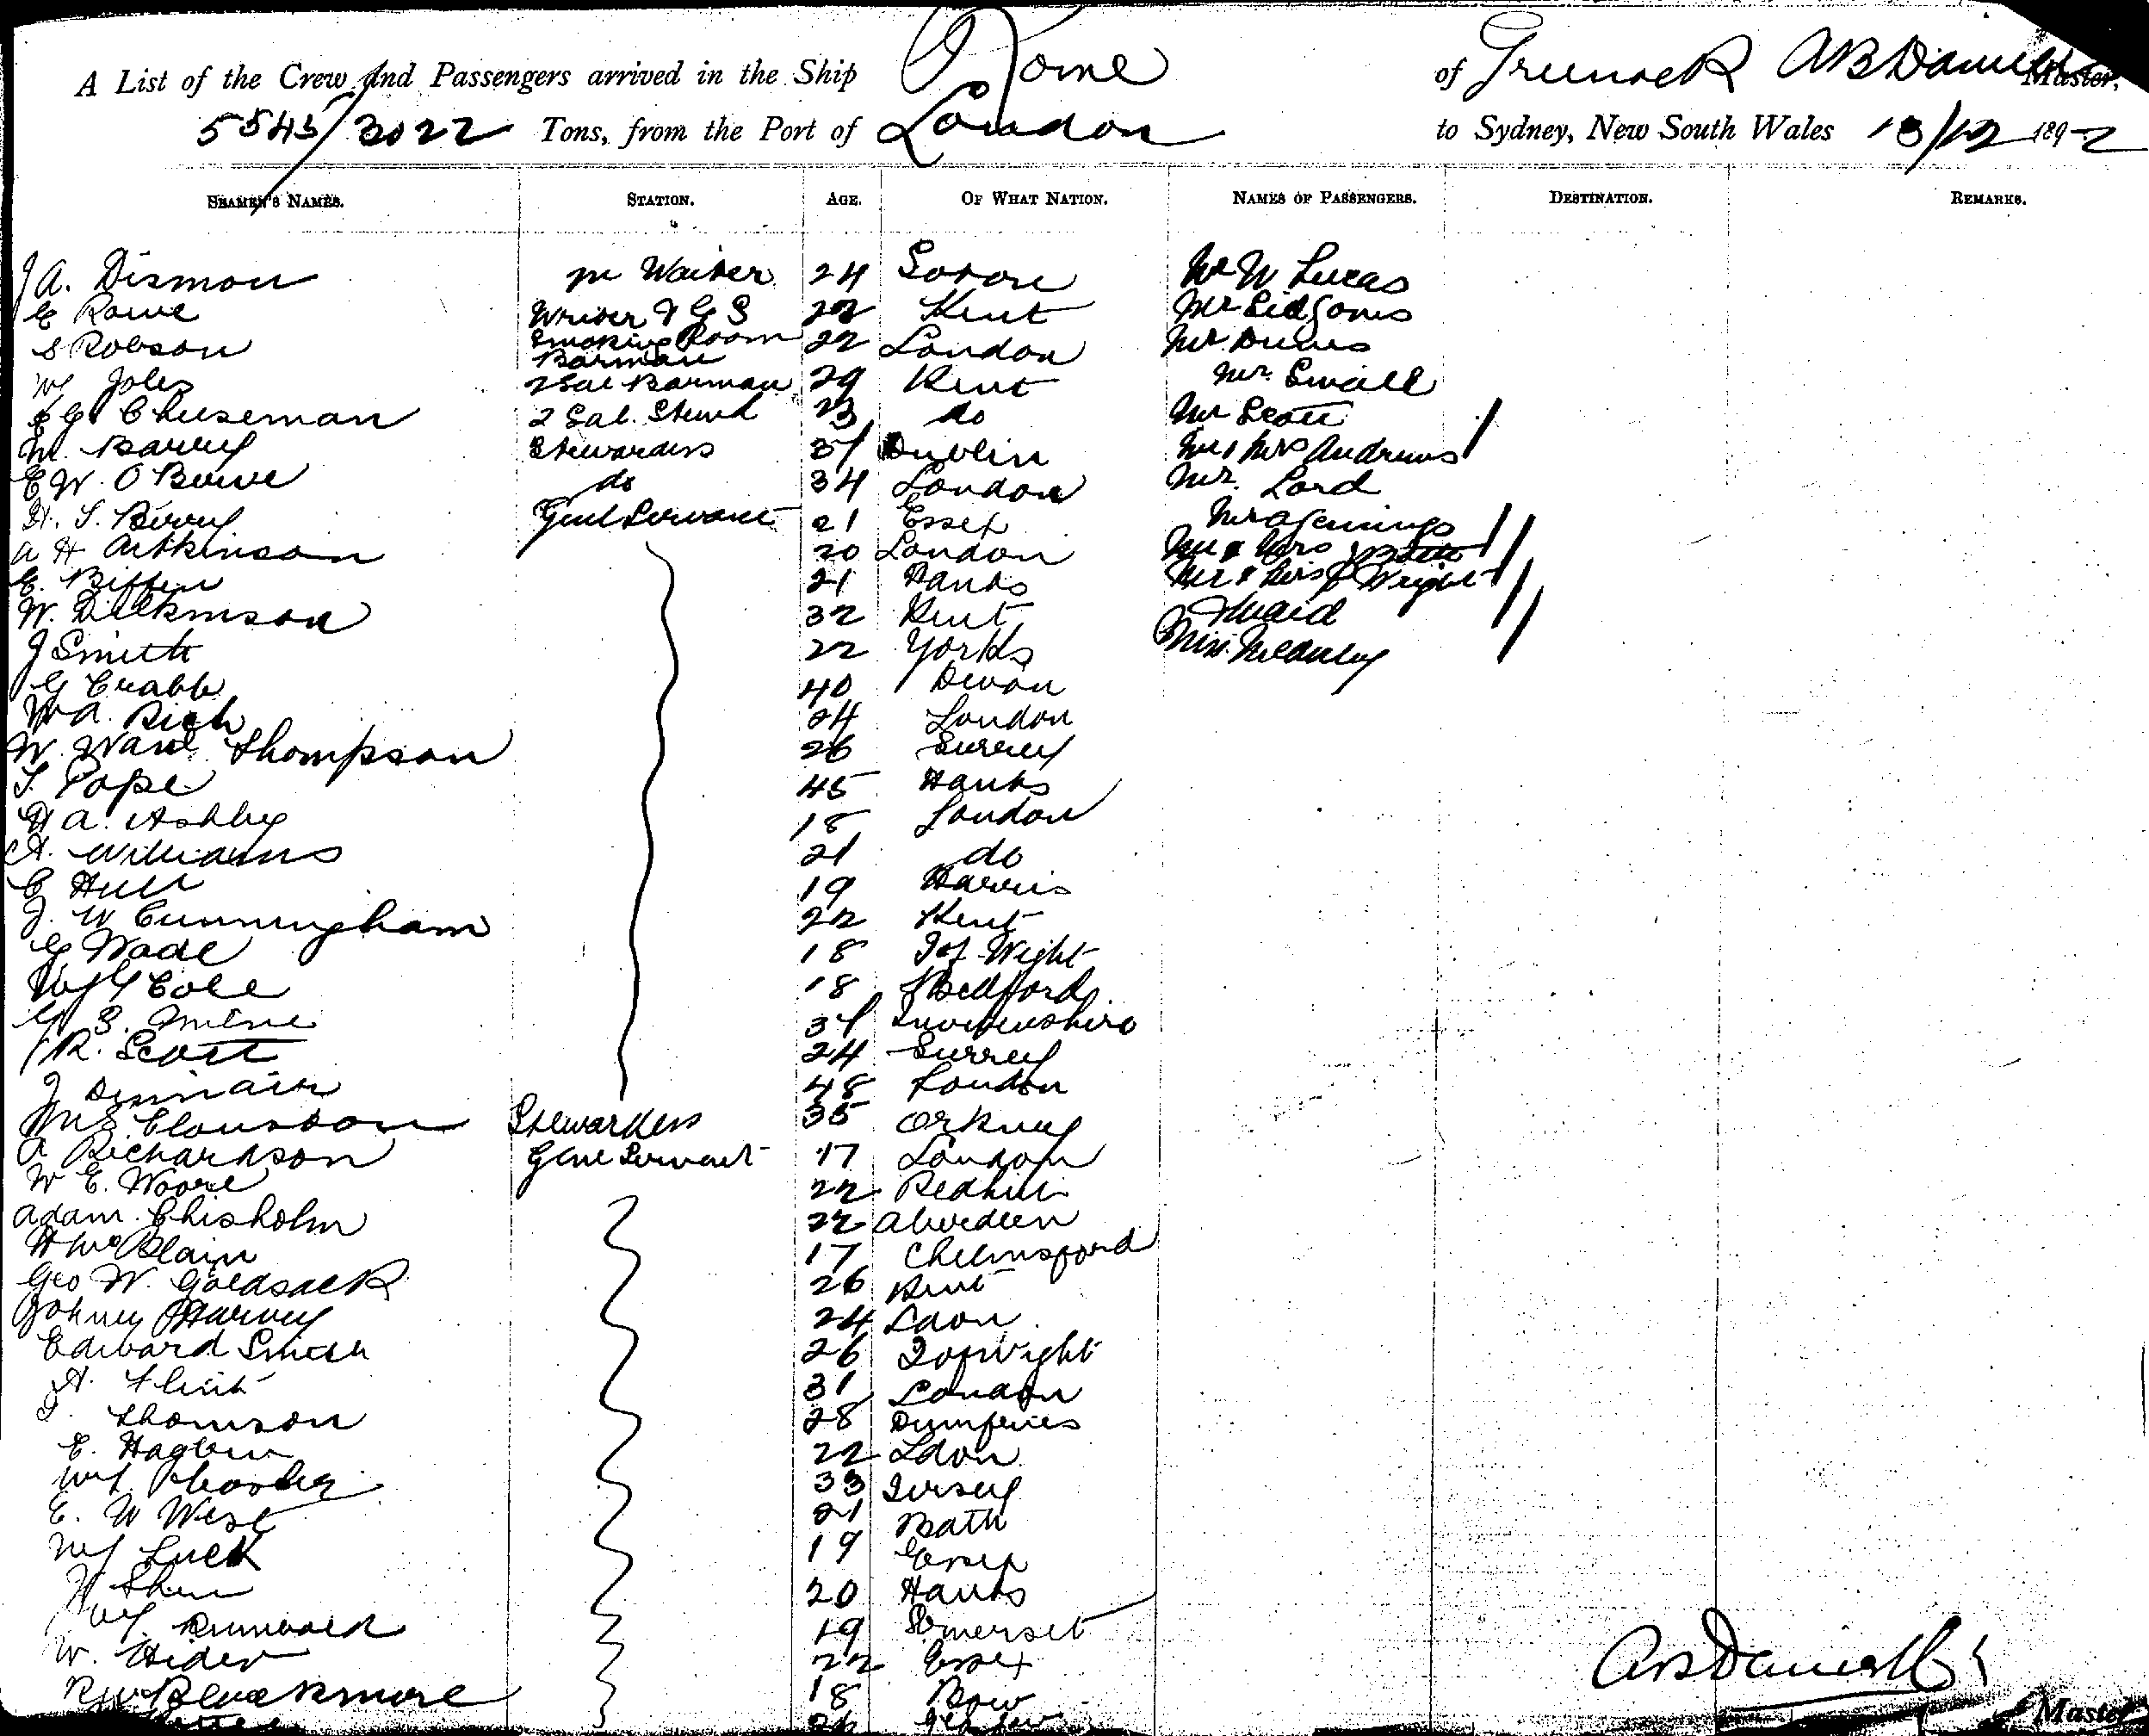 A List of the Crew and Passengers arrived in the Ship Rome of Greenock A B Daniell Master,
5543/3022 Tons, from the Port of London to Sydney, New South Wales 13/12 1892
SEAMEN'S NAMES. STATION. AGE. OF WHAT NATION. NAMES OF PASSENGERS. DESTINATION. REMARKS.
J A. Dismon Waiter 24 Mr W Lucas
E Rowe Writer & G S 22 Kent Mr Sid Jones
S Robson Smoking Room Barman 22 London Mr
W Joles 2 Sal Barman 29 Kent Mr. Small
E G Cheeseman 2 Sal. Stewd 23 do Mr Scott
M. Barry Stewardess 37 Dublin Mr & Mrs Andrews
E W. O Beirne do 34 London Mr. Lord
H. S. Berry Genl Servant 21 Essex Mr A Jennings
A H Aitkinson 20 London Mr & Mrs
E. Biffen 21 Hants Mr & Mrs Wright
W. Dilkinson 32 Kent & Maid
J Smith 22 Yorks Miss
G Crabb 40 Devon
W A. Rich 24 London
W. Ward Thompson 26 Surrey
S. Pope 45 Hants
H A. Ashby 18 London
A. Williams 21 do
C Hull 19 Harris
J. W Cunningham 22 Kent
G Wade 18 I of Wight
Wm G Cole 18 Bedford
G S. Milne 37
J R. Scott 24 Surrey
J 48 London
M S. Clouston Stewardess 35 Orkney
A Richardson Genl Servant 17 London
W E. Moore 22 Redhill
Adam Chisholm 22 Aberdeen
H McBlain 17 Chelmsford
Geo W. Goldsack 26 Kent
Johney Harvey 24 Ldon
Edward Smith 26 I of Wight
A. Flint 31 London
J. Thomson 28 Dumfries
E. 22 Ldon
Wm 33 Jersey
E. W West 21 Bath
Wm Luck 19 Essex
H 20 Hants
Wm 19 Somerset
W. Hider 22 Essex
R W Blackmore 18 Bow
A B Daniell
Master